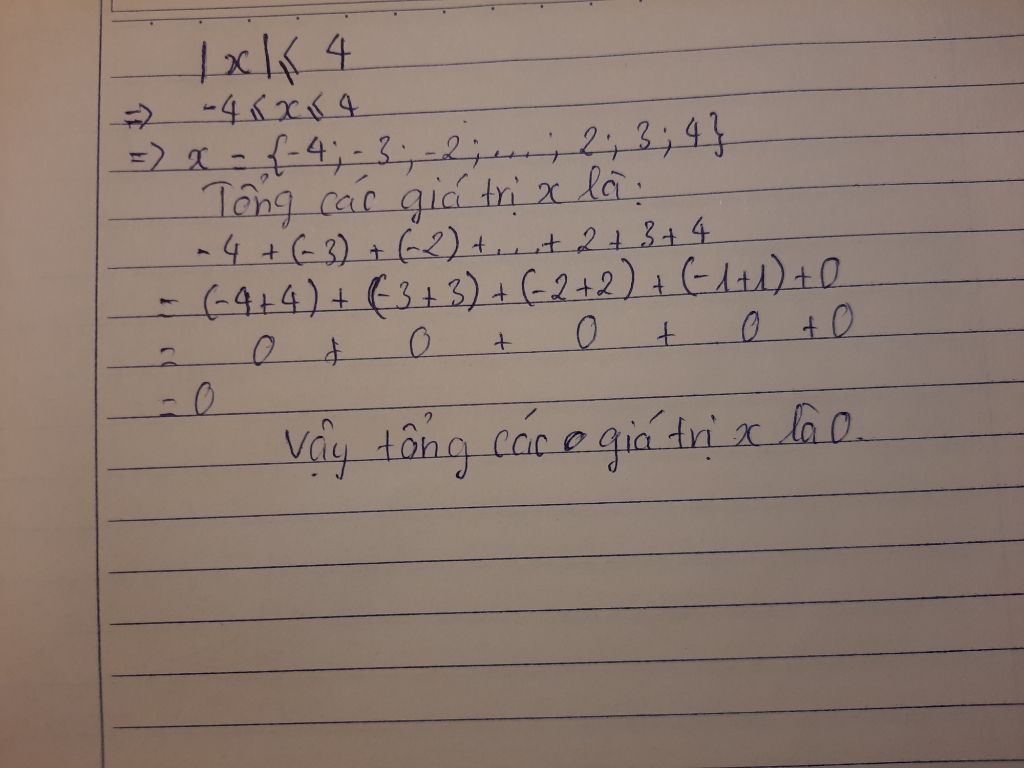 |x| ⩽ 4
=> -4 ⩽ x ⩽ 4
=> x = {-4; -3; -2; ...; 2; 3; 4}
Tổng các giá trị x là:
-4 + (-3) + (-2) + ... + 2 + 3 + 4
= (-4+4) + (-3+3) + (-2+2) + (-1+1) + 0
= 0 + 0 + 0 + 0 + 0
= 0
Vậy tổng các giá trị x là 0.